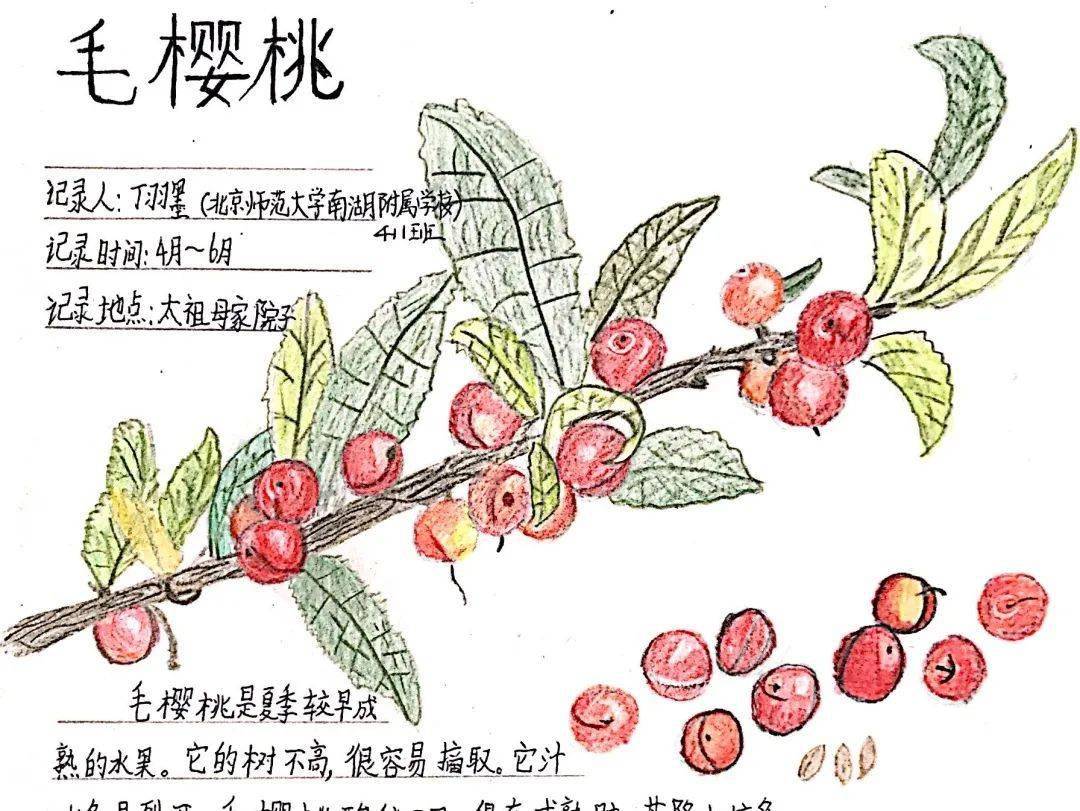 毛樱桃
记录人：丁羽墨（北京师范大学南湖附属学校）
4.11班
记录时间：4月～6月
记录地点：太祖母家院子
毛樱桃是夏季较早成
熟的水果。它的树不高，很容易摘取。它汁